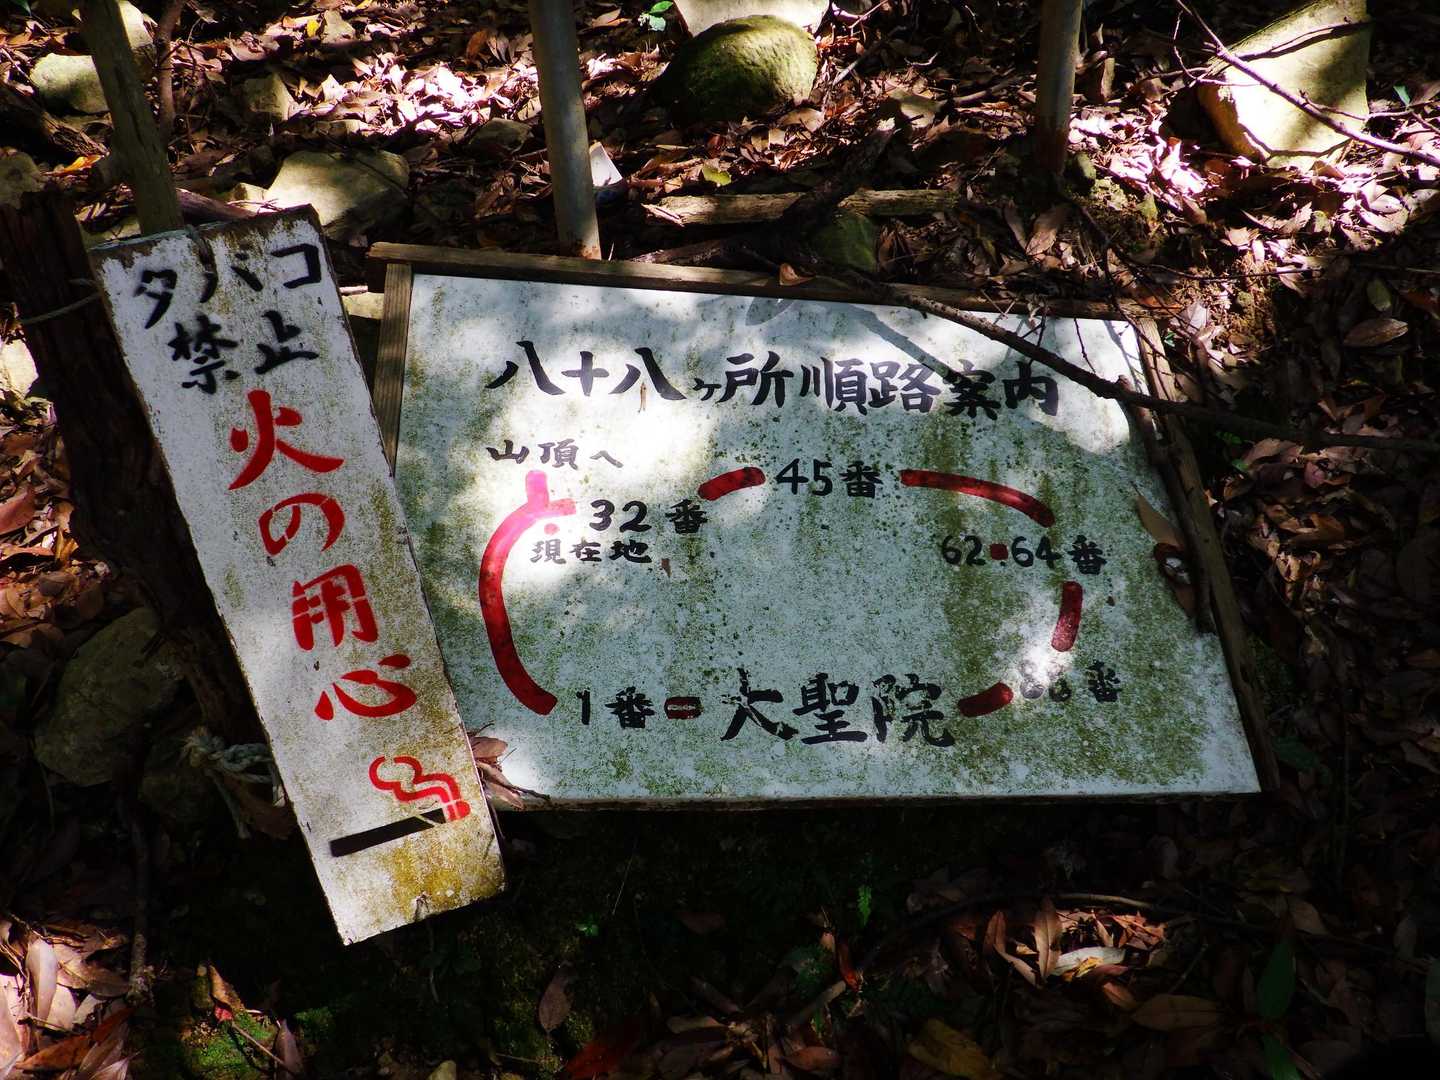 タバコ
禁止
火の用心
八十八ヶ所順路案内
山頂へ
45番
32番
現在地
62・64番
番
1番
大聖院